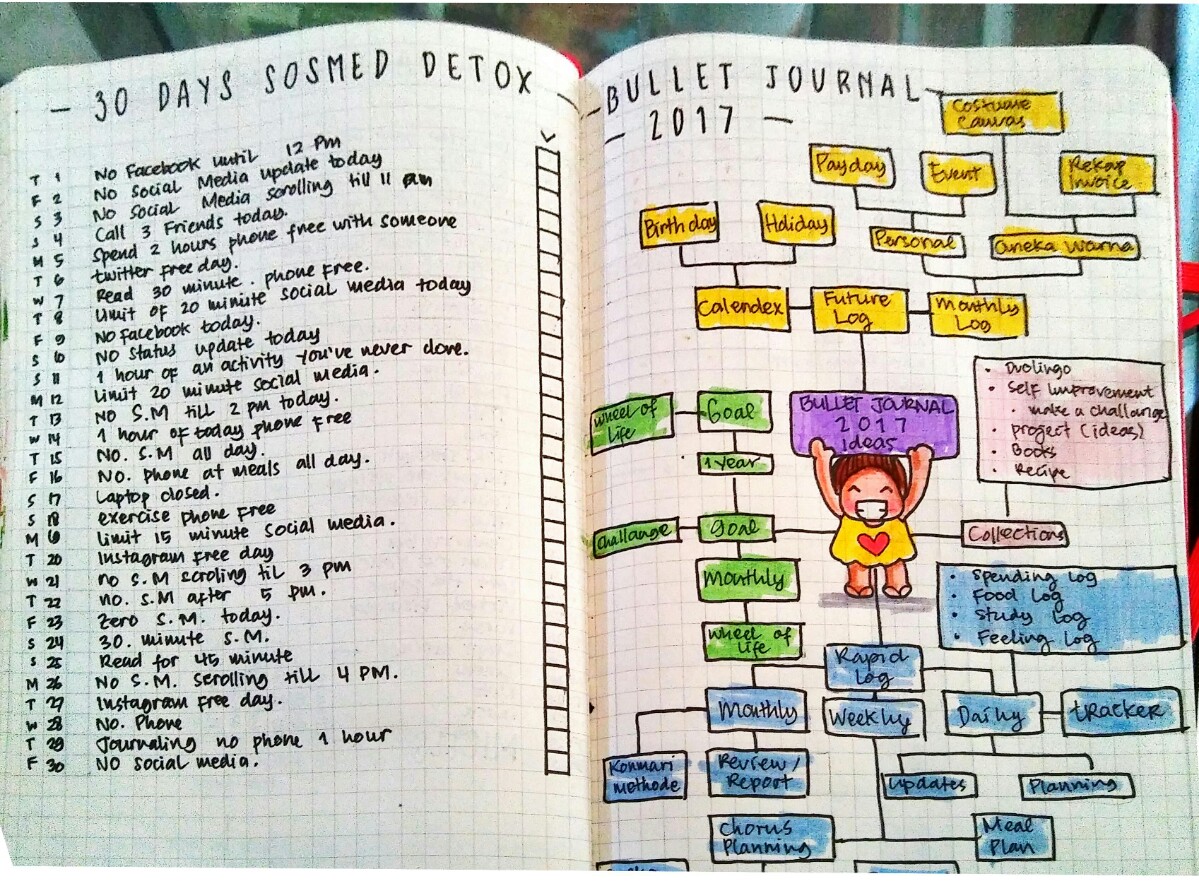 — 30 DAYS SOSMED DETOX —
T 1 No Facebook until 12 PM
F 2 No Social Media update today
S 3 No Social Media scrolling till 11 am
S 4 Call 3 Friends today.
M 5 Spend 2 hours phone free with someone
T 6 twitter free day.
W 7 Read 30 minute. phone free.
T 8 Limit of 20 minute social media today
F 9 No Facebook today.
S 10 No status update today
S 11 1 hour of an activity you've never done.
M 12 Limit 20 minute social media.
T 13 No S.M till 2 pm today.
W 14 1 hour of today phone free
T 15 No. S.M all day.
F 16 No. phone at meals all day.
S 17 Laptop closed.
S 18 exercise phone free
M 19 limit 15 minute social media.
T 20 Instagram free day
W 21 no S.M scroling til 3 pm
T 22 no. S.M after 5 pm.
F 23 Zero S.M. today.
S 24 30. minute S.M.
S 25 Read for 45 minute
M 26 No S.M. scrolling till 4 PM.
T 27 Instagram free day.
W 28 No. Phone
T 29 Journaling no phone 1 hour
F 30 NO social media.
— BULLET JOURNAL —
— 2017 —
Costume
Canvas
Payday
Event
Rekap
Invoice
Birthday
Holiday
Personal
aneka warna
Calendex
Future
Log
Monthly
Log
wheel of
life
Goal
1 year
BULLET JOURNAL
2017
ideas
• Duolingo
• Self Improvement
• make a challange
• project (ideas)
• Books
• Recipe
challange
goal
Collections
Monthly
wheel of
life
• Spending log
• Food Log
• Study log
• Feeling log
Rapid
Log
Monthly
Weekly
Daily
tracker
Konmari
methode
Review/
Report
updates
Planning
Chorus
Planning
Meal
Plan